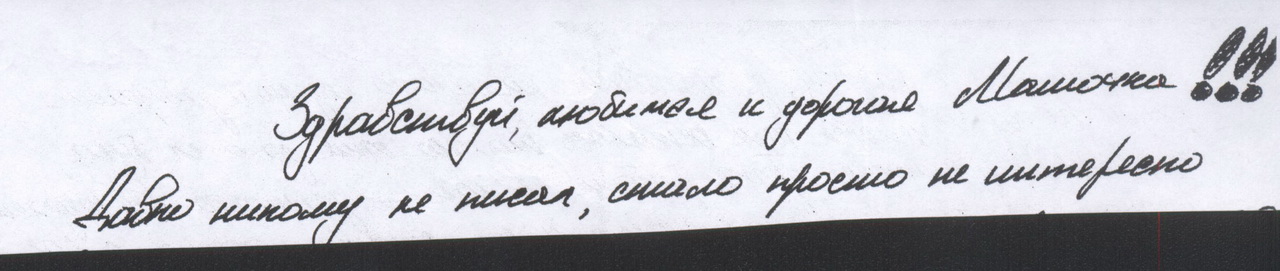 Здравствуй, любимая и дорогая Машочка!!!
Давно никому не писал, стало просто не интересно